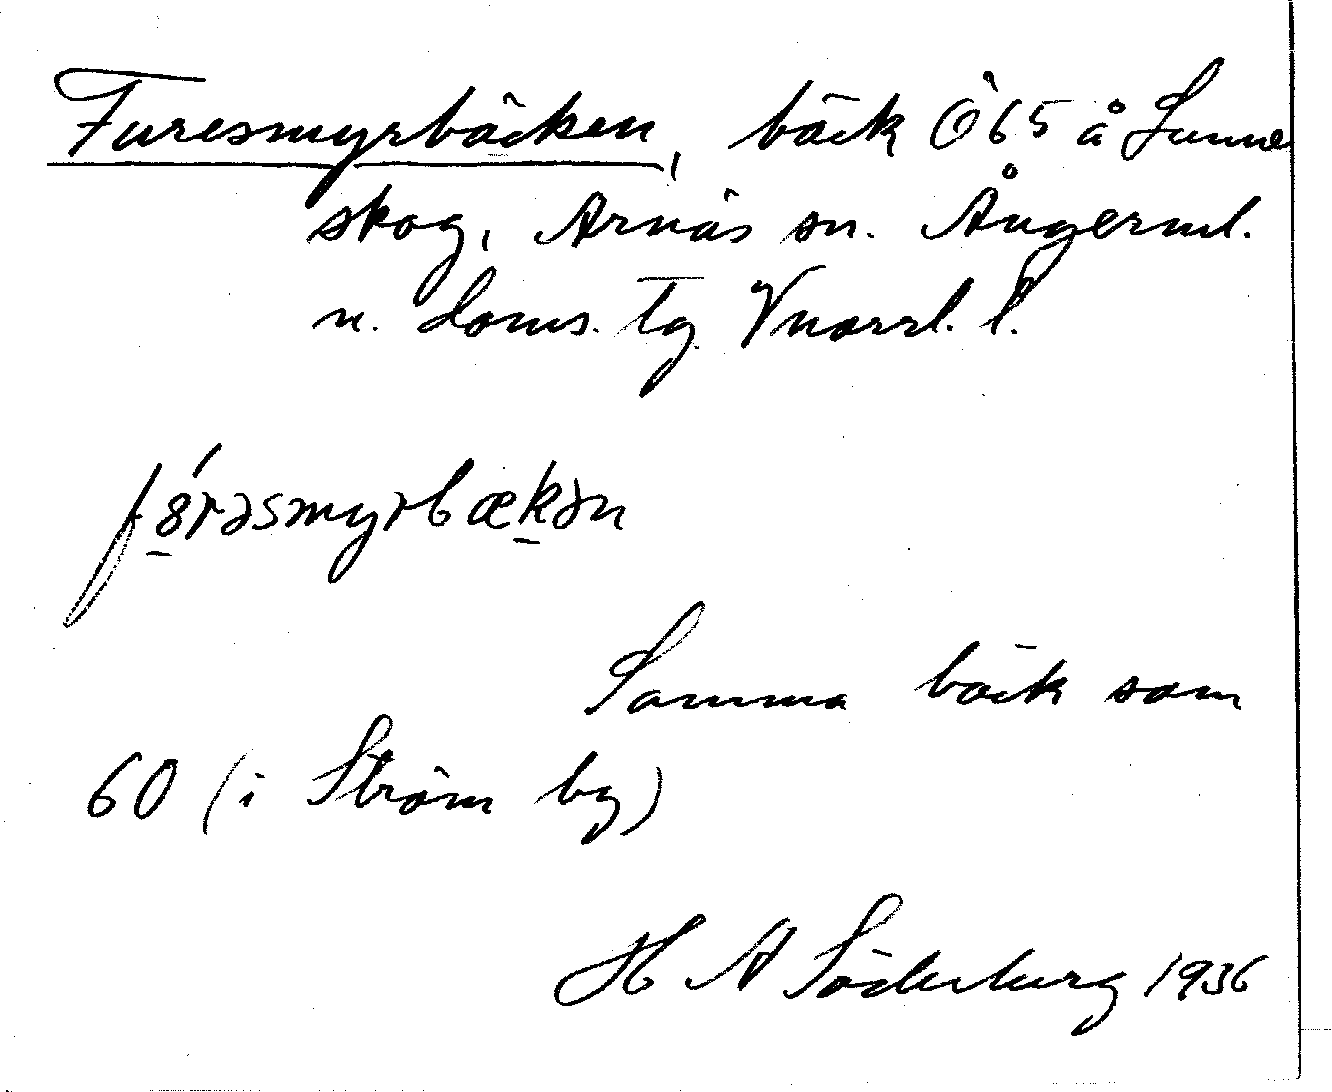 Furesmyrbäcken, bäck Ö 65 å Sunne
skog, Arnäs sn. Ångerml.
n. doms. tg. Vnorrl. l.
fȣ́rəsmyrbækən
Samma bäck som
60 (i Ström by)
H A Söderberg 1936